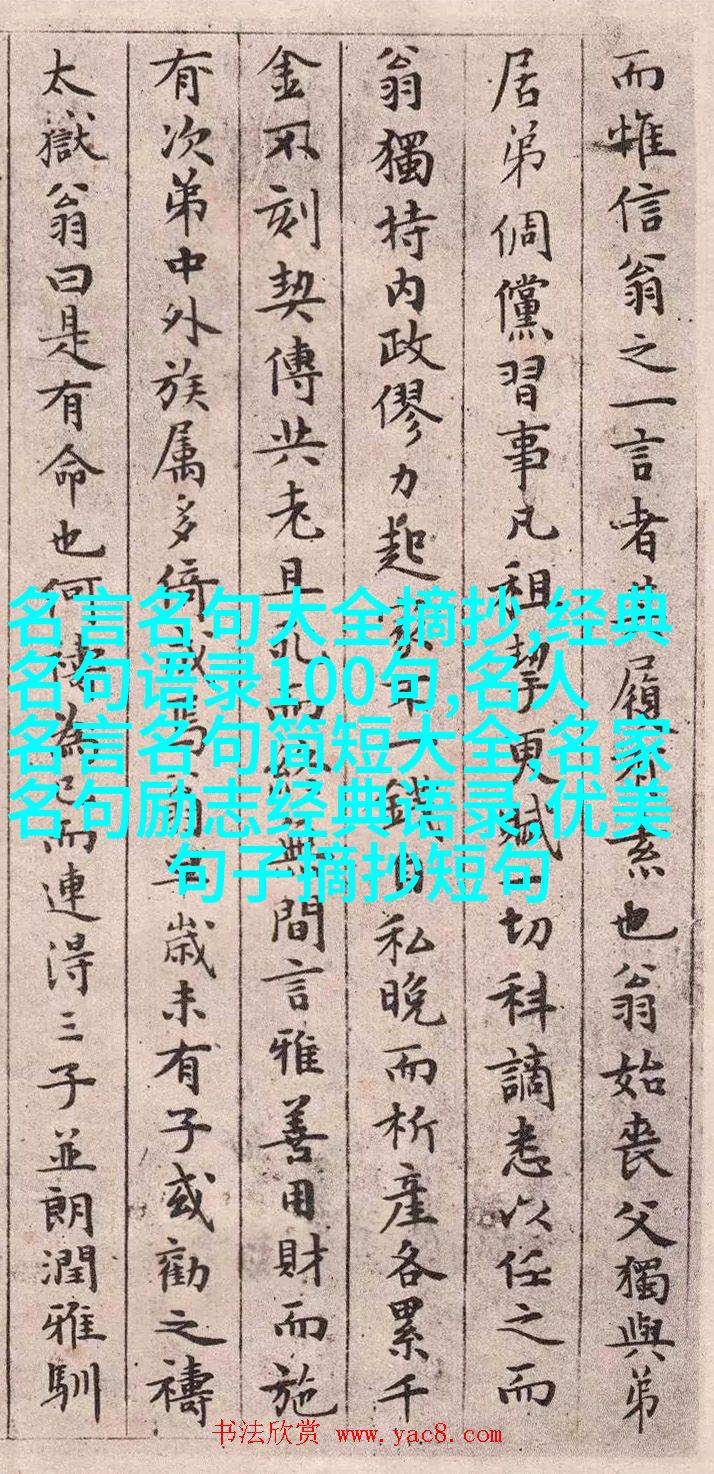 而惟信翁之一言者其履界素也翁始喪父獨與弟
居弟倜儻習事凡租挈更賦一切科謫悉以任之而
翁獨持内政僇力起家不一錢自私晚而析產各累千
金不刻契傳共老且死而無間言雅善用財而施
有次弟中外族属多倚翁歲未有子或勸之禱
太嶽翁曰是有命也何禱為已而連淂三子並朗潤雅馴
名言名句大全摘抄,经典
名句语录100句,名人
名言名句简短大全,名家
名句励志经典语录,优美
句子摘抄短句
书法欣赏 www.yac8.com